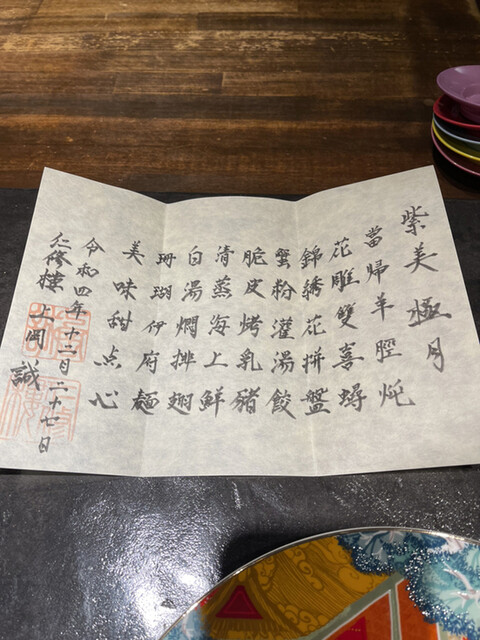 紫美極月
當帰羊脛炖
花雕雙喜蟳
錦綉花拼盤
蟹粉灌湯餃
脆皮烤乳豬
清蒸海上鮮
白湯燜排翅
珊瑚伊府麺
美味甜点心
令和四年十二月二十七日
仁修樓 上岡誠